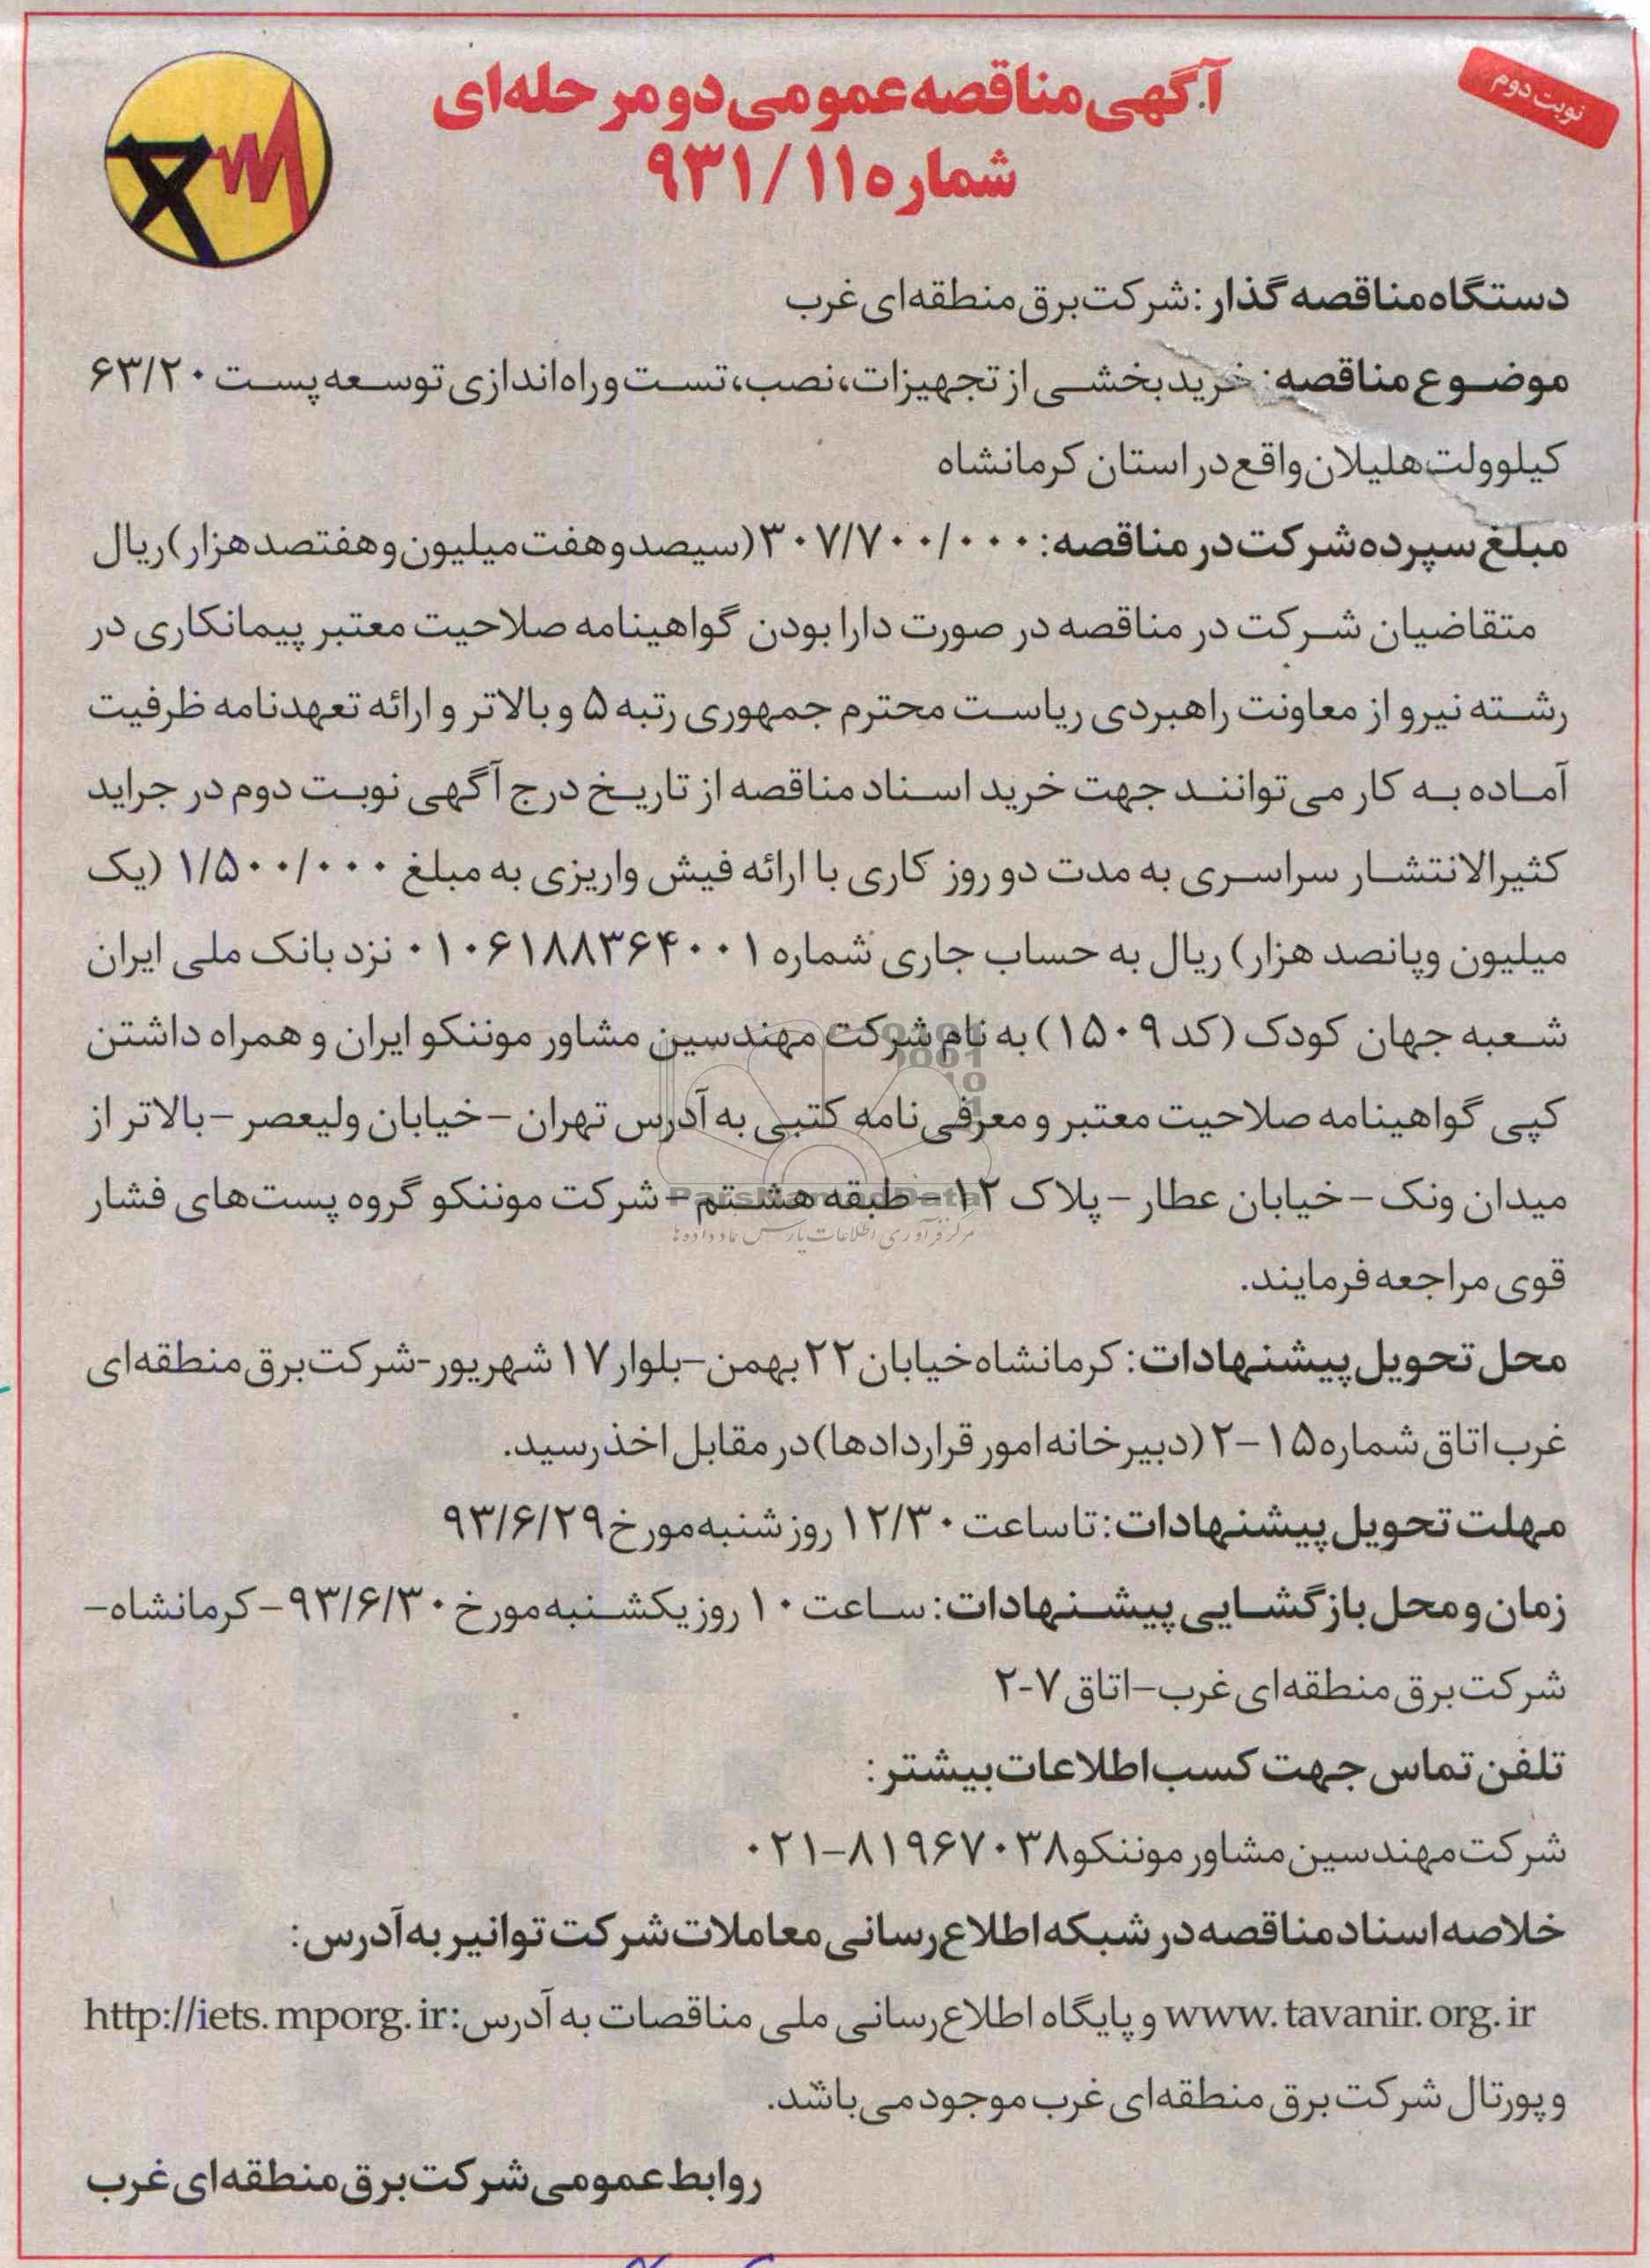 نوبت دوم
آگهی مناقصه عمومی دو مرحله‌ای
شماره ۹۳۱/۱۱
دستگاه مناقصه گذار: شرکت برق منطقه‌ای غرب
موضوع مناقصه: خرید بخشی از تجهیزات، نصب، تست و راه‌اندازی توسعه پست ۶۳/۲۰
کیلوولت هلیلان واقع در استان کرمانشاه
مبلغ سپرده شرکت در مناقصه: ۳۰۷/۷۰۰/۰۰۰ (سیصد و هفت میلیون و هفتصد هزار) ریال
متقاضیان شرکت در مناقصه در صورت دارا بودن گواهینامه صلاحیت معتبر پیمانکاری در
رشته نیرو از معاونت راهبردی ریاست محترم جمهوری رتبه ۵ و بالاتر و ارائه تعهدنامه ظرفیت
آماده به کار می‌توانند جهت خرید اسناد مناقصه از تاریخ درج آگهی نوبت دوم در جراید
کثیرالانتشار سراسری به مدت دو روز کاری با ارائه فیش واریزی به مبلغ ۱/۵۰۰/۰۰۰ (یک
میلیون وپانصد هزار) ریال به حساب جاری شماره ۰۱۰۶۱۸۸۳۶۴۰۰۱ نزد بانک ملی ایران
شعبه جهان کودک (کد ۱۵۰۹) به نام شرکت مهندسین مشاور موننکو ایران و همراه داشتن
کپی گواهینامه صلاحیت معتبر و معرفی‌نامه کتبی به آدرس تهران – خیابان ولیعصر – بالاتر از
میدان ونک – خیابان عطار – پلاک ۱۲ – طبقه هشتم – شرکت موننکو گروه پست‌های فشار
قوی مراجعه فرمایند.
ParsNamadData
مرکز فرآوری اطلاعات پارس نماد داده ها
محل تحویل پیشنهادات: کرمانشاه خیابان ۲۲ بهمن–بلوار ۱۷ شهریور-شرکت برق منطقه‌ای
غرب اتاق شماره ۱۵–۲ (دبیرخانه امور قراردادها) در مقابل اخذ رسید.
مهلت تحویل پیشنهادات: تا ساعت ۱۲/۳۰ روز شنبه مورخ ۹۳/۶/۲۹
زمان و محل بازگشایی پیشنهادات: ساعت ۱۰ روز یکشنبه مورخ ۹۳/۶/۳۰ – کرمانشاه–
شرکت برق منطقه‌ای غرب–اتاق ۷-۲
تلفن تماس جهت کسب اطلاعات بیشتر:
شرکت مهندسین مشاور موننکو ۸۱۹۶۷۰۳۸–۰۲۱
خلاصه اسناد مناقصه در شبکه اطلاع رسانی معاملات شرکت توانیر به آدرس:
www.tavanir.org.ir و پایگاه اطلاع رسانی ملی مناقصات به آدرس: http://iets.mporg.ir
و پورتال شرکت برق منطقه‌ای غرب موجود می‌باشد.
روابط عمومی شرکت برق منطقه‌ای غرب